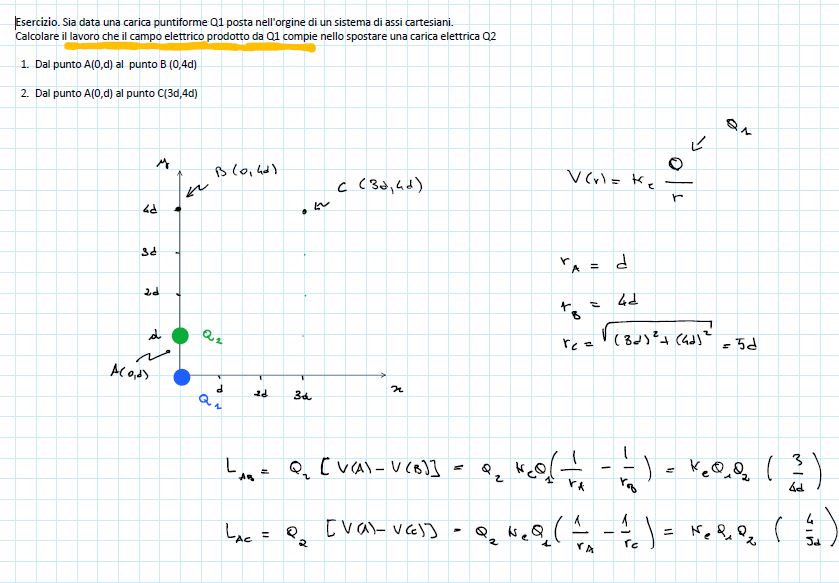 Esercizio. Sia data una carica puntiforme Q1 posta nell'orgine di un sistema di assi cartesiani.
Calcolare il lavoro che il campo elettrico prodotto da Q1 compie nello spostare una carica elettrica Q2
1. Dal punto A(0,d) al punto B (0,4d)
2. Dal punto A(0,d) al punto C(3d,4d)
Q₁
y
B (0,4d)
C (3d,4d)
V(r) = Kₑ Q / r
4d
3d
2d
d
Q₂
A(0,d)
Q₁
d
2d
3d
x
r_A = d
r_B = 4d
r_C = √((3d)² + (4d)²) = 5d
L_AB = Q₂ [V(A) − V(B)] = Q₂ KₑQ₁ (1/r_A − 1/r_B) = KₑQ₁Q₂ (3/4d)
L_AC = Q₂ [V(A) − V(C)] = Q₂ KₑQ₁ (1/r_A − 1/r_C) = KₑQ₁Q₂ (4/5d)